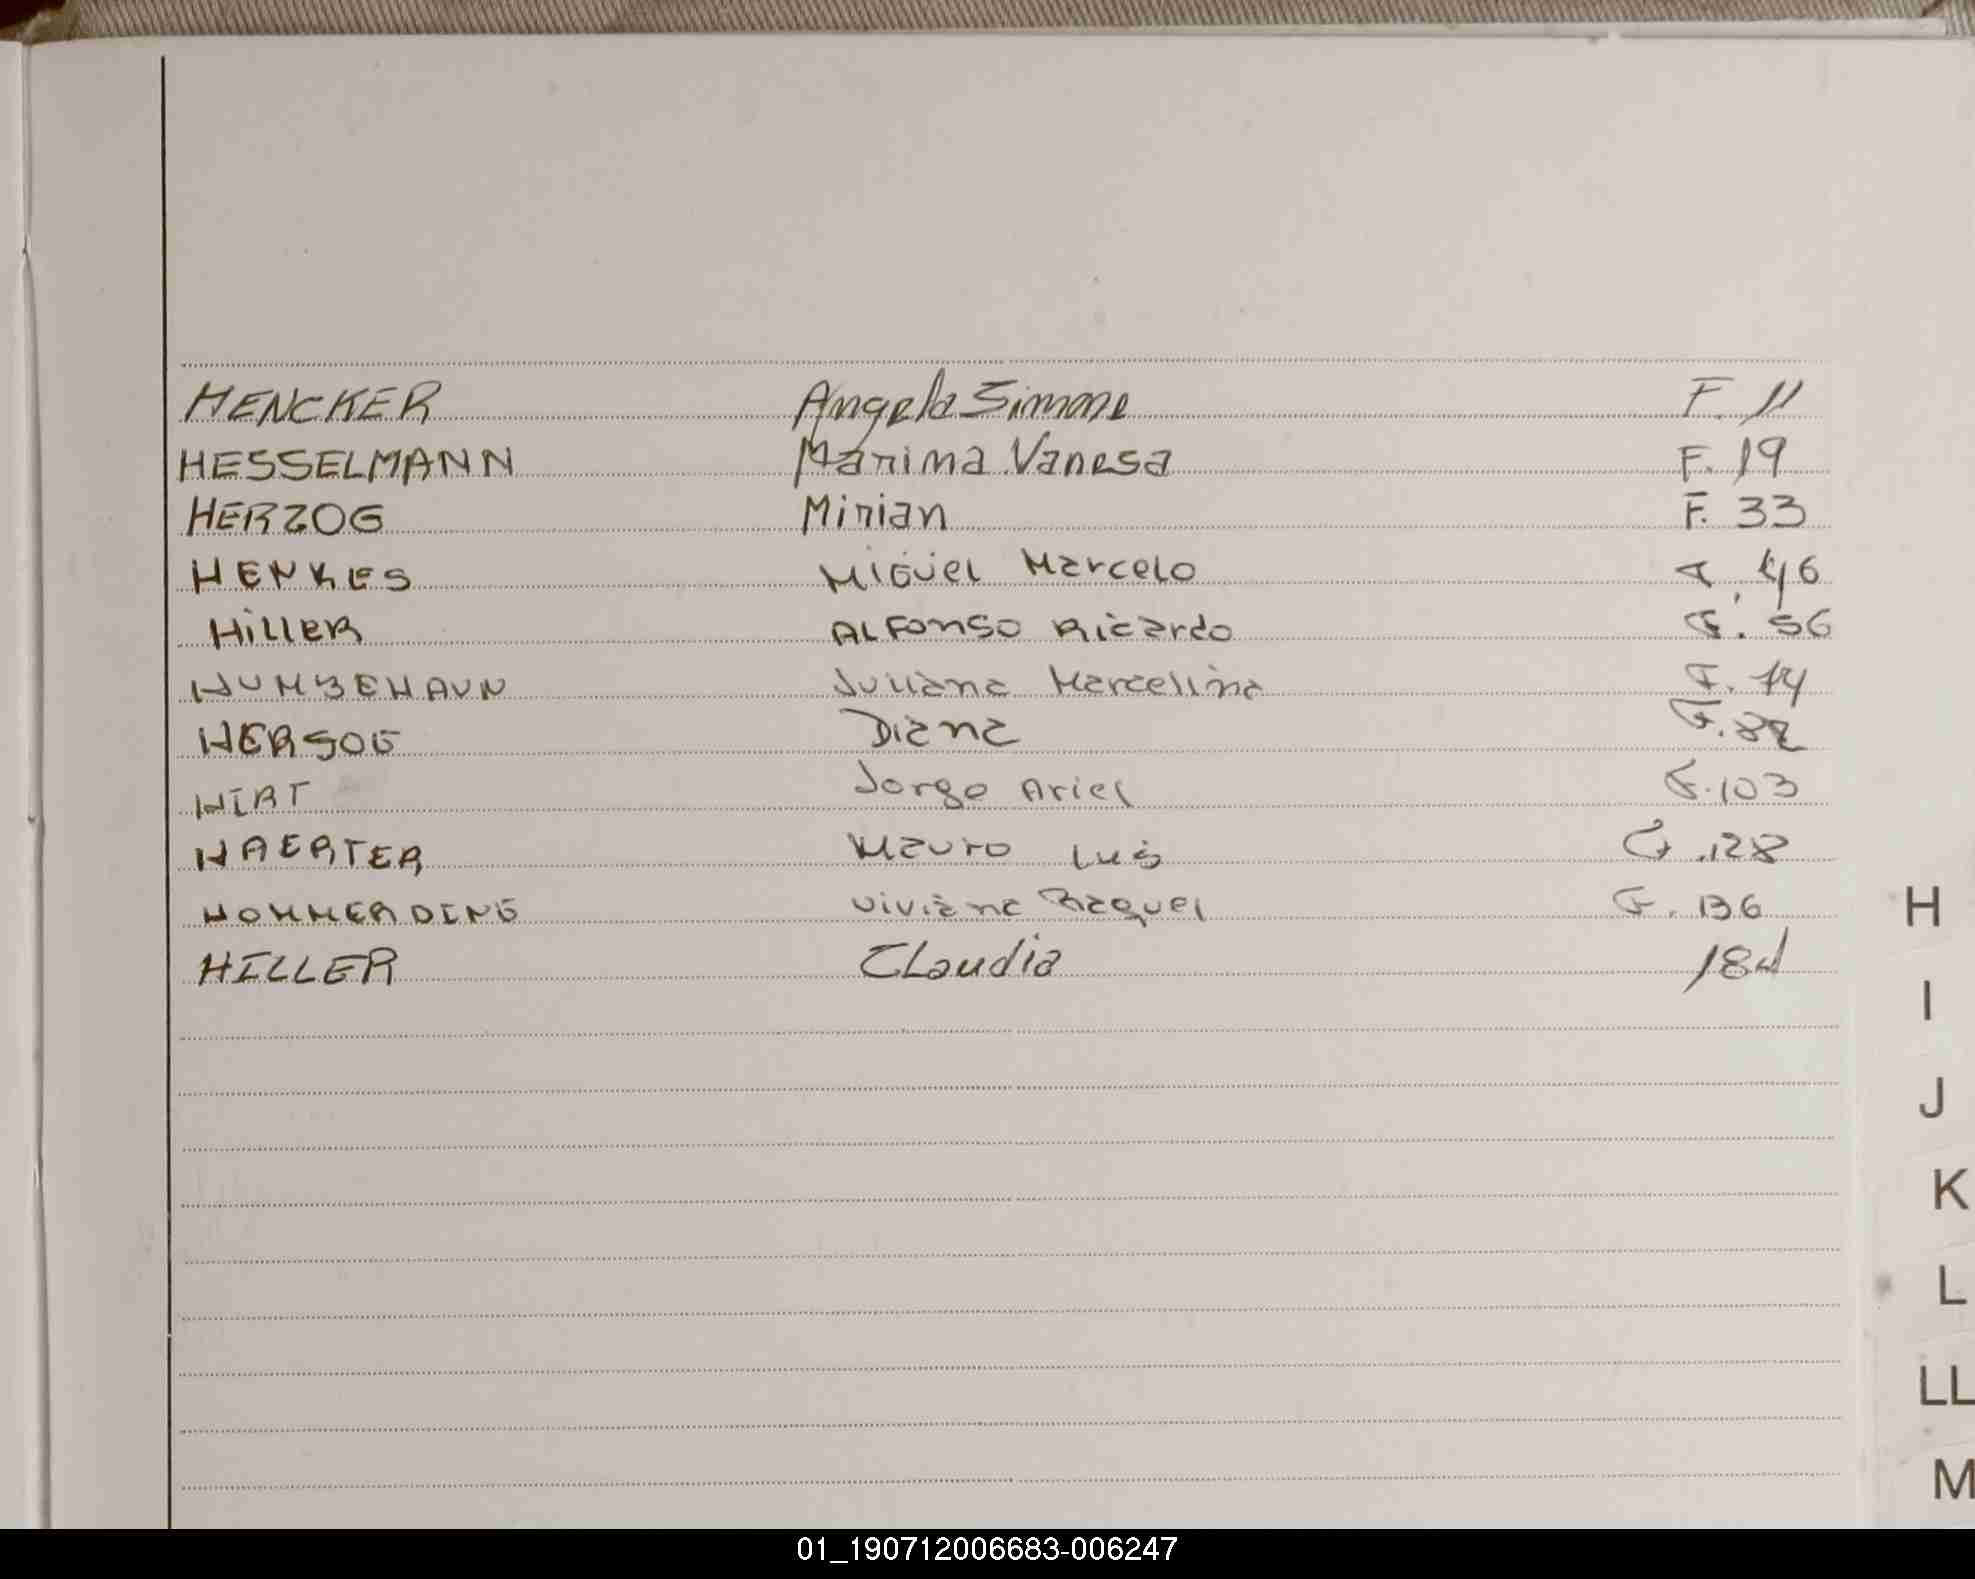 HENCKER Angela Simone F. 11
HESSELMANN Marima Vanesa F. 19
HERZOG Mirian F. 33
HENKES Miguel Marcelo F. 46
HILLER ALFONSO Ricardo F. 56
HUMBEHAUN Juliana Marcelina F. 74
HERSOG Diana F.
HIRT Jorge Ariel F. 103
HAERTER Mauro Luis F. 128
HOMMERDING Viviana Raquel F. 136
HILLER Claudia
H
I
J
K
L
LL
M
01_190712006683-006247